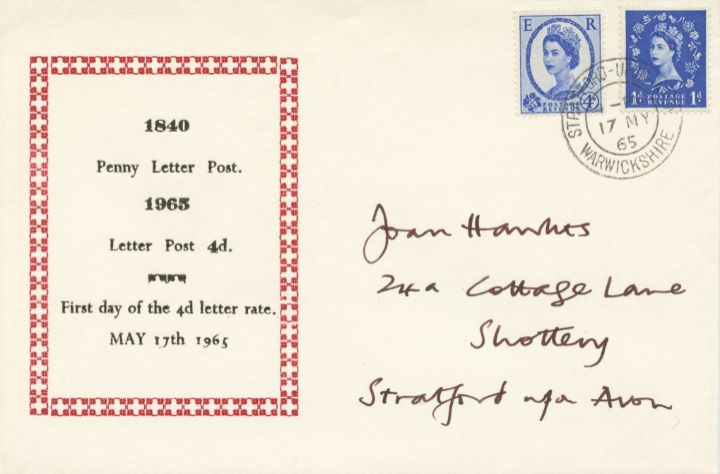 1840
Penny Letter Post.
1965
Letter Post 4d.
First day of the 4d letter rate.
MAY 17th 1965
E R
POSTAGE
REVENUE
4D
POSTAGE
1D REVENUE 1D
17 MY
65
WARWICKSHIRE
Joan Hawkes
24a Cottage Lane
Shottery
Stratford upn Avon